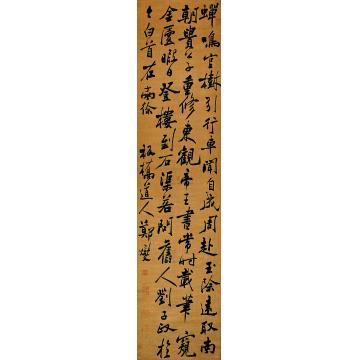 蟬鳴官樹引行車聞自成周赴玉除遠取南
朝貴公子重修東觀帝王書常時載筆窺
金匱暇日登樓到石渠若問舊人劉子政於
今白首在南徐
板橋道人鄭燮